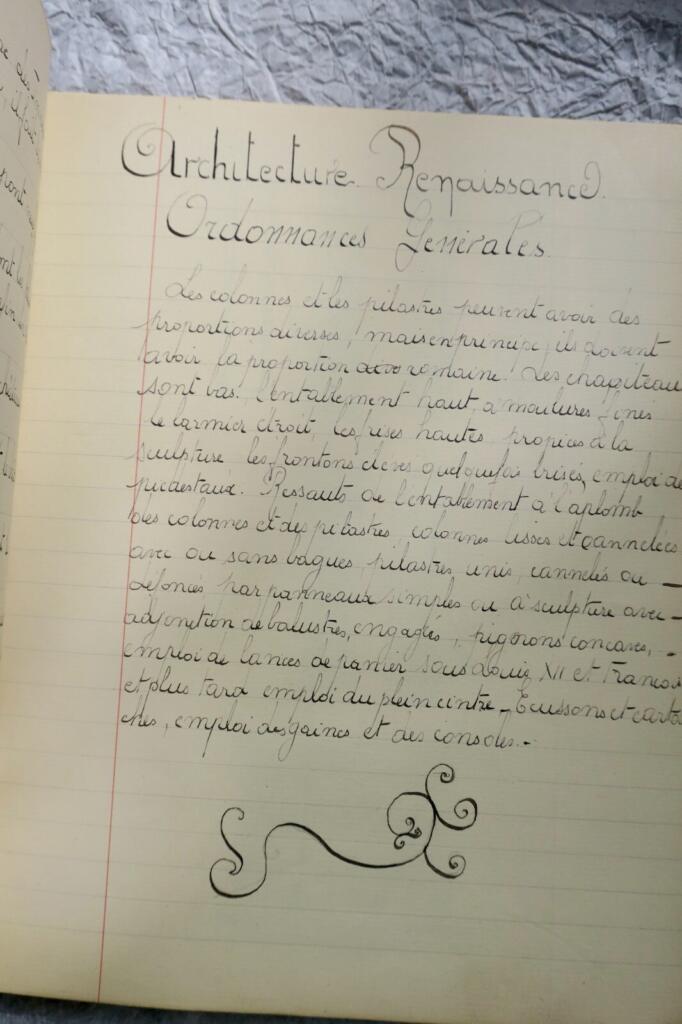 Architecture Renaissance.
Ordonnances Générales.
Les colonnes et les pilastres peuvent avoir des
proportions diverses, mais en principe, ils doivent
avoir la proportion romaine. Les chapiteau
sont bas. l'entablement haut, à moulures fines
le larmier étroit, les frises hautes, propices à la
sculpture les frontons élevés quelquefois brisés, emploi de
piedestaux. Ressauts de l'entablement à l'aplomb
des colonnes et des pilastres, colonnes lisses et cannelées
avec ou sans bagues, pilastres unis, cannelés ou —
défoncés par panneaux simples ou à sculpture avec -
adjonction de balustres, engagés, pigerons concaves, -
emploi de l'ances de panier sous Louis XII et Francois
et plus tard emploi du plein cintre - Ecussons et carto
ches, emploi des gaines et des consoles.-